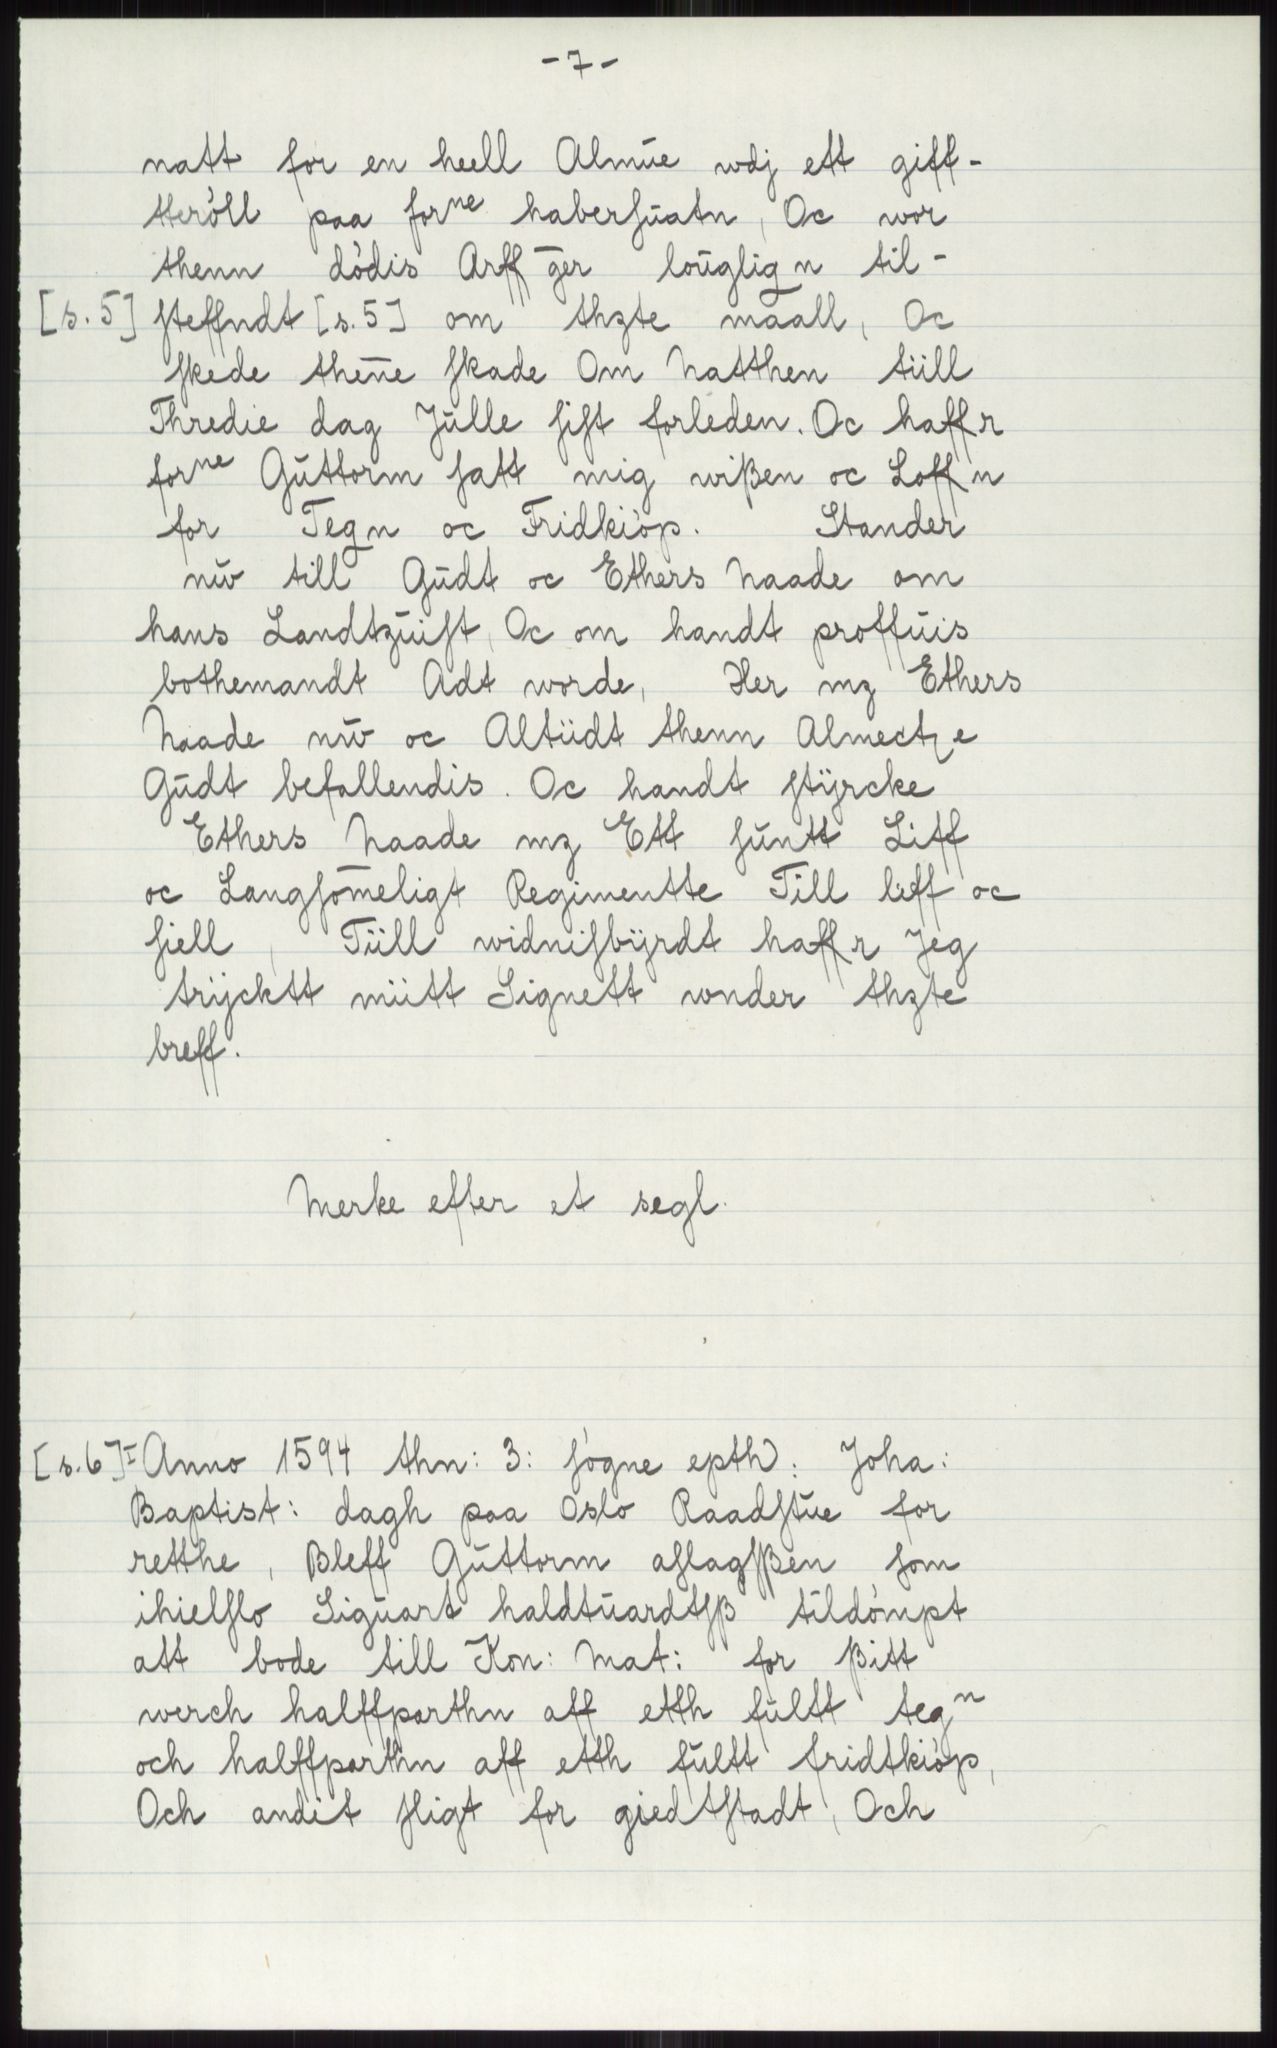 - 7 -
natt for en heell Almūe wdj ett giff-
tteröll paa forⁿᵉ haberſūatn, Oc wor
thenn dödis Arff̄ger loūglign til-
[s.5] ſteffndt [s.5] om thzte maall, Oc
ſkede then̄e ſkade Om Natthen tiill
Thredie dag Jūlle ſiſt forleden. Oc haffr
forⁿᵉ Gūttorm ſatt mig wißen oc Loffn
for Tegn oc Fridkiöp. Stander
nw till Gūdt oc Ethers Naade om
hans Landtzūiſt, Oc om handt proffūis
bothemandt Adt worde, Her mz Ethers
Naade nw oc Altiidt thenn Almectze
Gūdt befallendis. Oc handt ſtÿrcke
Ethers Naade mz Ett ſūntt Liff
oc Langſom̄eligt Regimentte Till liff oc
ſiell, Tiill widniſbÿrdt haffr Jeg
trÿcktt miitt Signett wnder thzte
breff.
Merke efter et segl.
[s.6]ᴵ Anno 1594 thn: 3: ſögne epth: Joha:
Baptist: dagh paa Oslo Raadſtūe for
retthe, Bleff Gūttorm aſlagſßen ſom
ihielſlo Sigūart haldtūardtſß tildömpt
att bode till Kon: Mat: for ßitt
werch halffparthn aff etth fūltt tegⁿ
och halffparthn aff etth fūltt fridtkiöp,
Och andit ſligt for giedtſtadt, Och